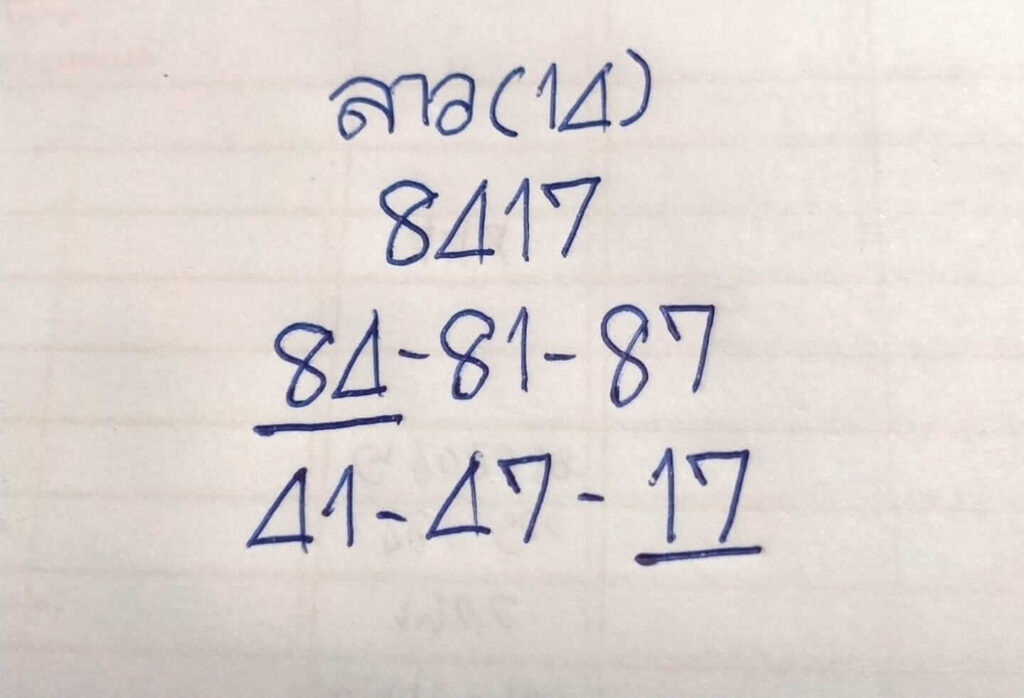 ลาว(14)
8417
84-81-87
41-47-17